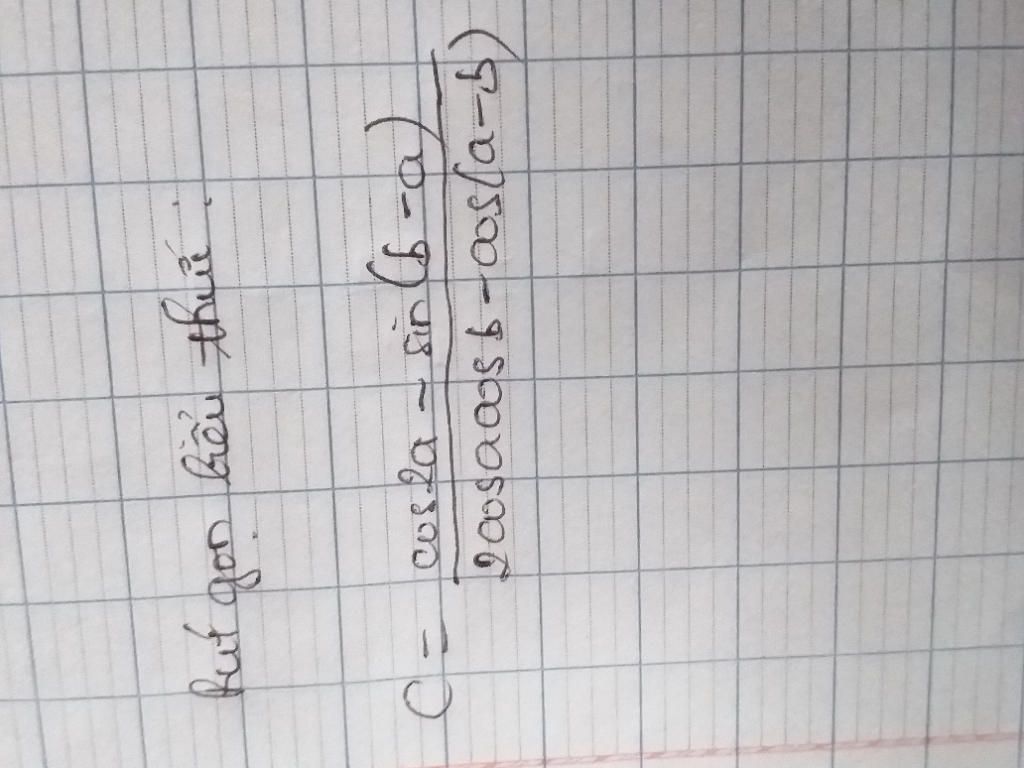 Rut gọn biểu thức:
C = \frac{cos2a - sin(b-a)}{2cosacosb - cos(a-b)}